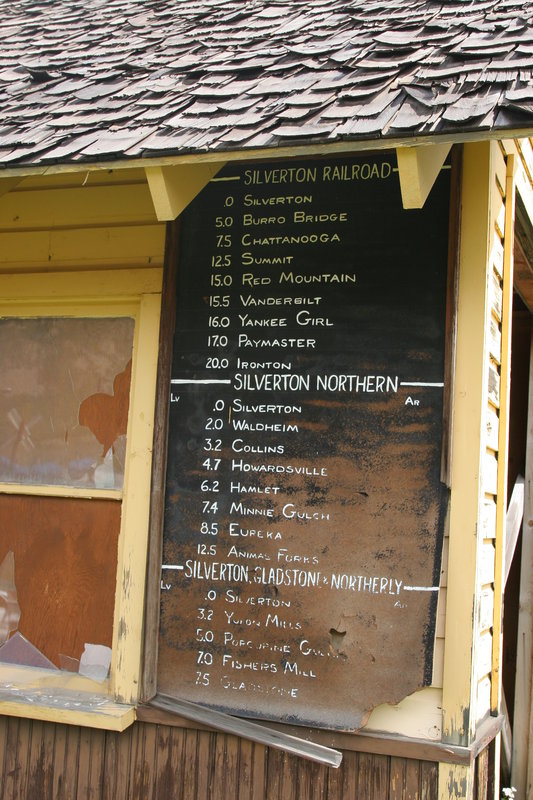 SILVERTON RAILROAD
.0 SILVERTON
5.0 BURRO BRIDGE
7.5 CHATTANOOGA
12.5 SUMMIT
15.0 RED MOUNTAIN
15.5 VANDERBILT
16.0 YANKEE GIRL
17.0 PAYMASTER
20.0 IRONTON
SILVERTON NORTHERN
Lv Ar
.0 SILVERTON
2.0 WALDHEIM
3.2 COLLINS
4.7 HOWARDSVILLE
6.2 HAMLET
7.4 MINNIE GULCH
8.5 EUREKA
12.5 ANIMAS FORKS
SILVERTON, GLADSTONE & NORTHERLY
Lv Ar
.0 SILVERTON
3.2 YUKON MILLS
5.0 PORCUPINE GULCH
7.0 FISHERS MILL
7.5 GLADSTONE